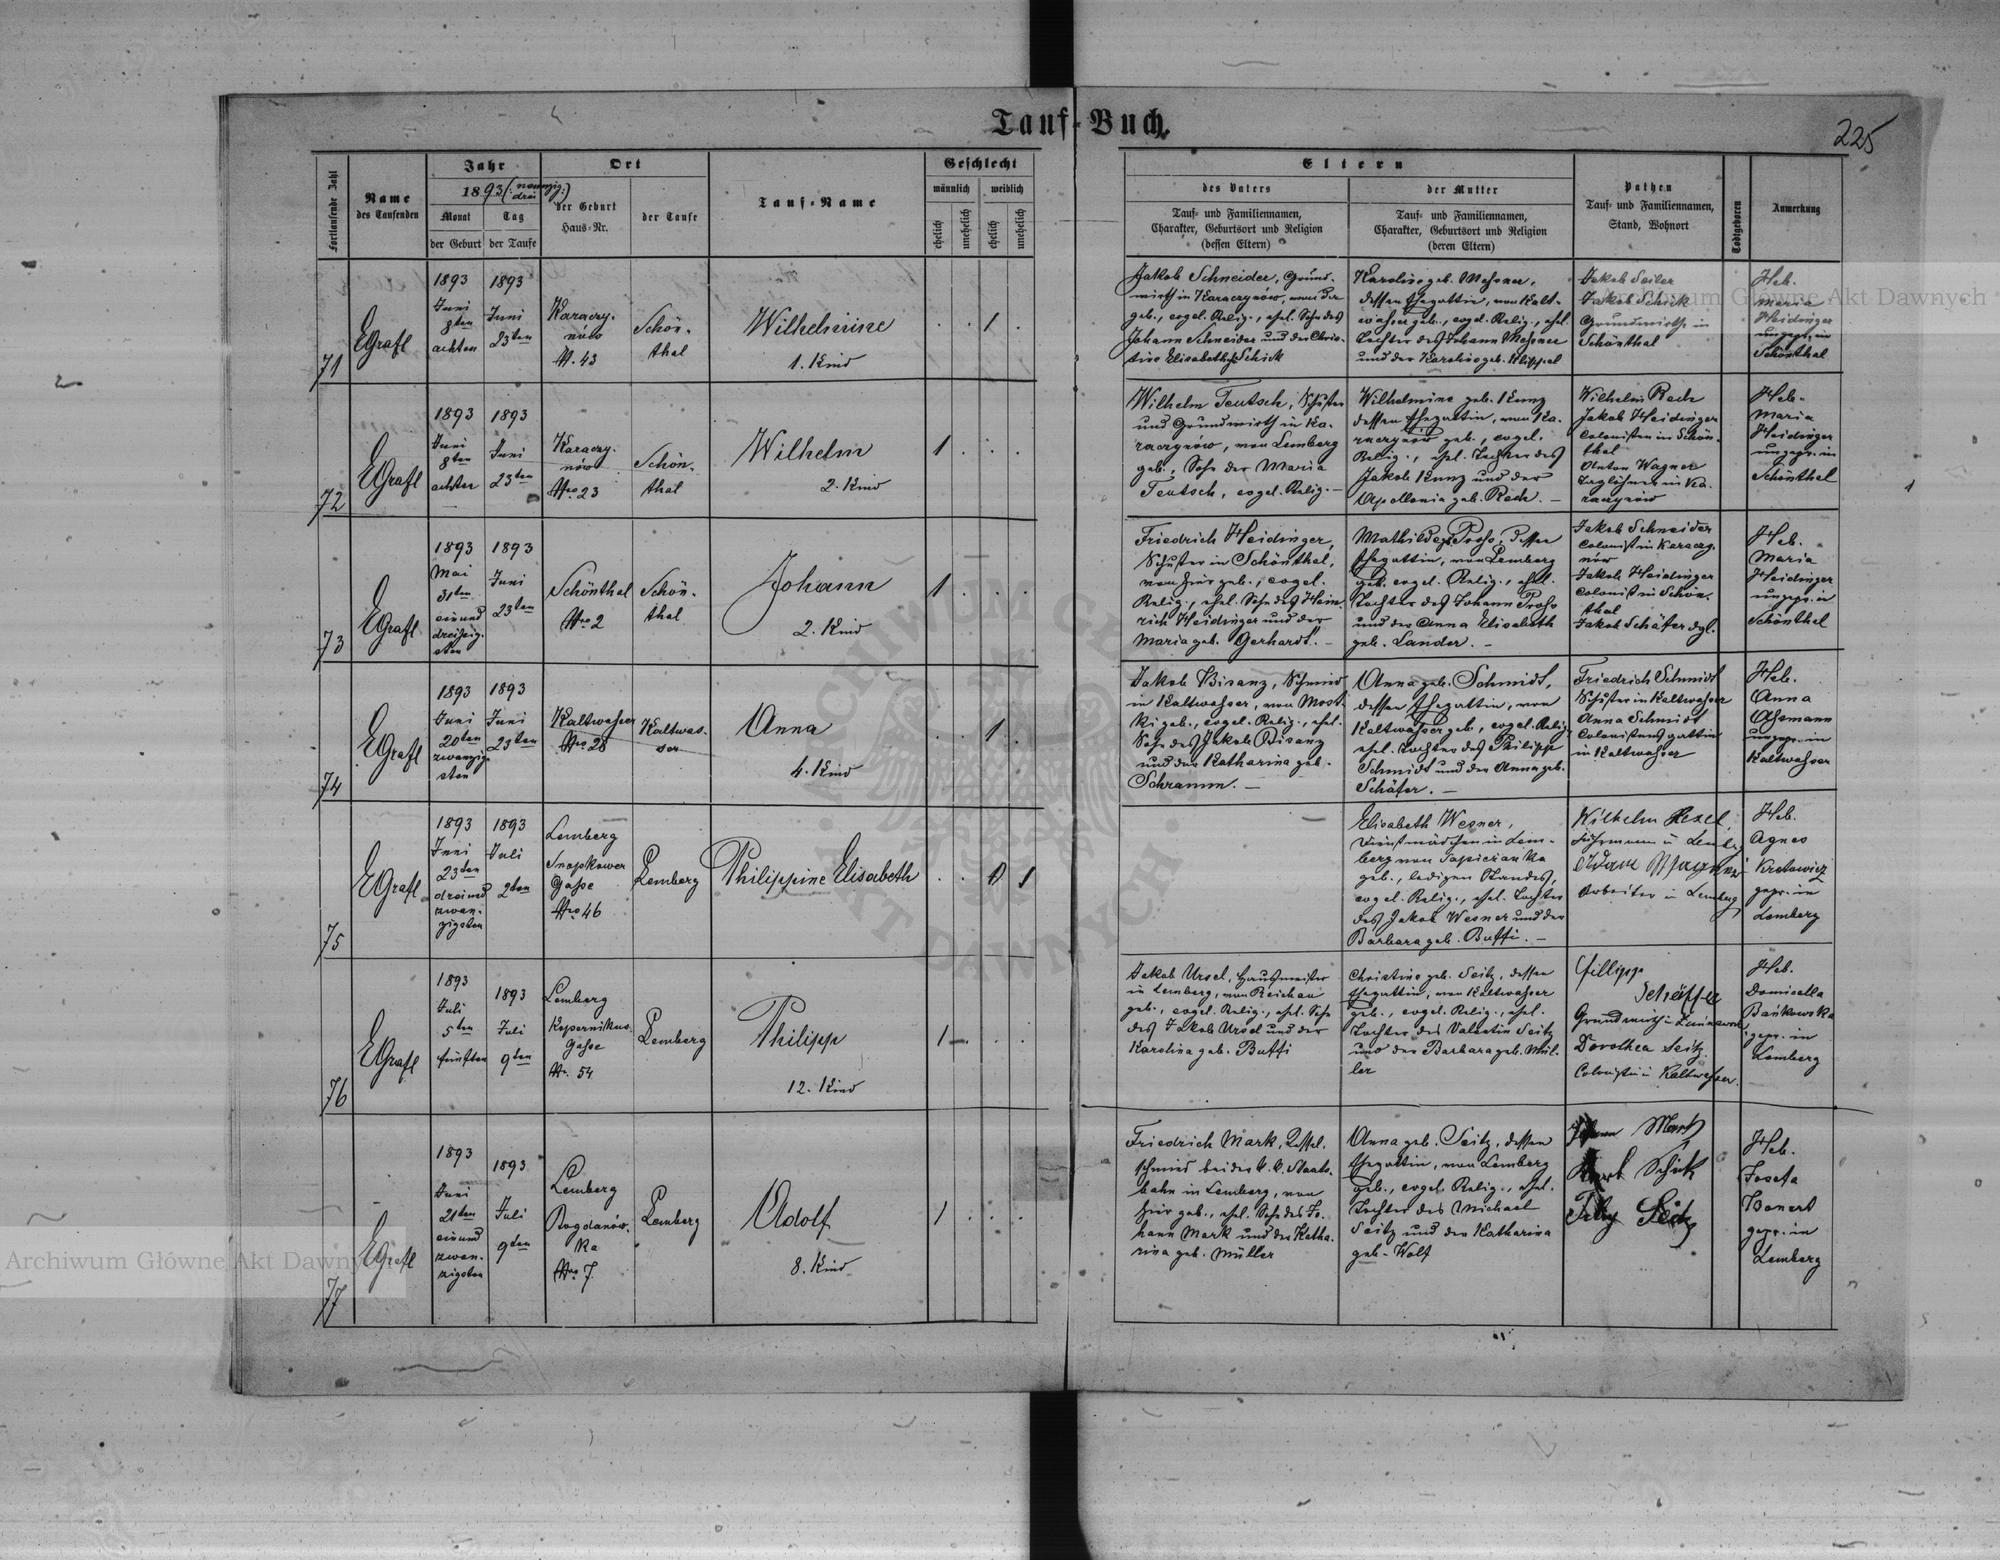 Tauf-Buch.
225
Fortlaufende Zahl
Name
des Taufenden
Jahr
1893 (: neunzig:)
drei
Monat
der Geburt
Tag
der Taufe
Ort
der Geburt
Haus-Nr.
der Taufe
Tauf-Name
Geschlecht
männlich
weiblich
ehelich
unehelich
ehelich
unehelich
Eltern
des Vaters
Tauf- und Familiennamen,
Charakter, Geburtsort und Religion
(dessen Eltern)
der Mutter
Tauf- und Familiennamen,
Charakter, Geburtsort und Religion
(deren Eltern)
Pathen
Tauf- und Familiennamen,
Stand, Wohnort
Todtgeboren
Anmerkung
71
EGrafl
1893
Juni
8ten
achten
1893
Juni
23ten
Karaczy-
nów
N. 43
Schön-
thal
Wilhelmine
1. Kind
1
Jakob Schneider, Grund-
wirth in Karaczynów, von der
geb., evgel. Relig., ehel. Sohn des
Johann Schneider und der Chris-
tine Elisabeth Schick
Karoline geb. Messner,
dessen Ehegattin, von Kalt-
wasser geb., evgel. Relig., ehel.
Tochter des Johann Messner
und der Karoline geb. Klippel
Jakob Seiler
Jakob Schick
Grundwirthe in
Schönthal
Heb.
Maria
Heidinger
ungepr. in
Schönthal
72
EGrafl
1893
Juni
8ten
achten
1893
Juni
23ten
Karaczy-
nów
Nro 23
Schön-
thal
Wilhelm
2. Kind
1
Wilhelm Teutsch, Schuster
und Grundwirth in Ka-
raczynów, von Lemberg
geb., Sohn der Maria
Teutsch, evgel. Relig. —
Wilhelmine geb. Kunz
dessen Ehegattin, von Ka-
raczynów geb., evgel.
Relig., ehel. Tochter des
Jakob Kunz und der
Apollonia geb. Rech. —
Wilhelm Rech
Jakob Heidinger
Colonisten in Schön-
thal
Anton Wagner
Taglöhner in Ka-
raczynów
Heb.
Maria
Heidinger
ungepr. in
Schönthal
73
EGrafl
1893
Mai
31ten
einund
dreissig-
sten
1893
Juni
23ten
Schönthal
Nro 2
Schön-
thal
Johann
2. Kind
1
Friedrich Heidinger,
Schuster in Schönthal,
von hier geb., evgel.
Relig., ehel. Sohn des Hein-
rich Heidinger und der
Maria geb. Gerhardt. —
Mathilde g. Proho, dessen
Ehegattin, von Lemberg
geb. evgel. Relig., ehel.
Tochter des Johann Proho
und der Anna Elisabeth
geb. Lander. —
Jakob Schneider
Colonist in Karaczy-
nów
Jakob Heidinger
Colonist in Schön-
thal
Jakob Schäfer dgl.
Heb.
Maria
Heidinger
ungepr. in
Schönthal
74
EGrafl
1893
Juni
20ten
zwanzig-
sten
1893
Juni
23ten
Kaltwasser
Nro 28
Kaltwas-
ser
Anna
4. Kind
1
Jakob Bisanz, Schmied
in Kaltwasser, von Most-
ki geb., evgel. Relig., ehel.
Sohn des Jakob Bisanz
und der Katharina geb.
Schramm. —
Anna geb. Schmidt,
dessen Ehegattin, von
Kaltwasser geb., evgel. Relig.,
ehel. Tochter des Philipp
Schmidt und der Anna geb.
Schäfer. —
Friedrich Schmidt
Schuster in Kaltwasser
Anna Schmidt
Colonistensgattin
in Kaltwasser
Heb.
Anna
Assmann
ungepr. in
Kaltwasser
75
EGrafl
1893
Juni
23ten
dreiund
zwan-
zigsten
1893
Juli
2ten
Lemberg
Snopkower
Gasse
Nro 46
Lemberg
Philippine Elisabeth
1
Elisabeth Wesner,
Dienstmädchen in Lem-
berg von Sapiezanka
geb., ledigen Standes,
evgel. Relig., ehel. Tochter
des Jakob Wesner und der
Barbara geb. Buffi. —
Wilhelm
in Lemberg
Adam Wagner
Arbeiter in Lemberg
Heb.
Agnes
gepr. in
Lemberg
76
EGrafl
1893
Juli
5ten
fünften
1893
Juli
9ten
Lemberg
Kopernikus-
Gasse
Nr. 54
Lemberg
Philipp
12. Kind
1
Jakob Ursel, Hausmeister
in Lemberg, von Reichau
geb., evgel. Relig., ehel. Sohn
des Jakob Ursel und der
Karolina geb. Buffi
Christine geb. Seitz, dessen
Ehegattin, von Kaltwasser
geb., evgel. Relig., ehel.
Tochter des Valentin Seitz
und der Barbara geb. Mül-
ler
Fillipp
Schäffer
Grundwirth in
Dorothea Seitz
Colonistin in Kaltwasser.
Heb.
Domicella
Bańkowska
gepr. in
Lemberg
77
EGrafl
1893
Juni
21ten
einund
zwan-
zigsten
1893
Juli
9ten
Lemberg
Bogdanów-
ka
Nro 7.
Lemberg
Adolf
8. Kind
1
Friedrich Mark, Kessel-
schmied bei der k. k. Staats-
bahn in Lemberg, von
hier geb., ehel. Sohn des Jo-
hann Mark und der Katha-
rina geb. Müller
Anna geb. Seitz, dessen
Ehegattin, von Lemberg
geb., evgel. Relig., ehel.
Tochter des Michael
Seitz und der Katharina
geb. Wolf
Mark
Schick
Seitz
Heb.
Josefa
Bonert
gepr. in
Lemberg
Archiwum Główne Akt Dawnych
Archiwum Główne Akt Dawnych